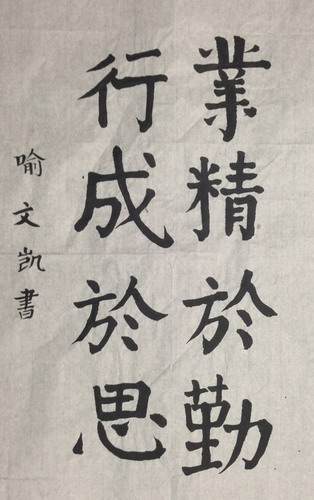 業精於勤
行成於思
喻文凯書